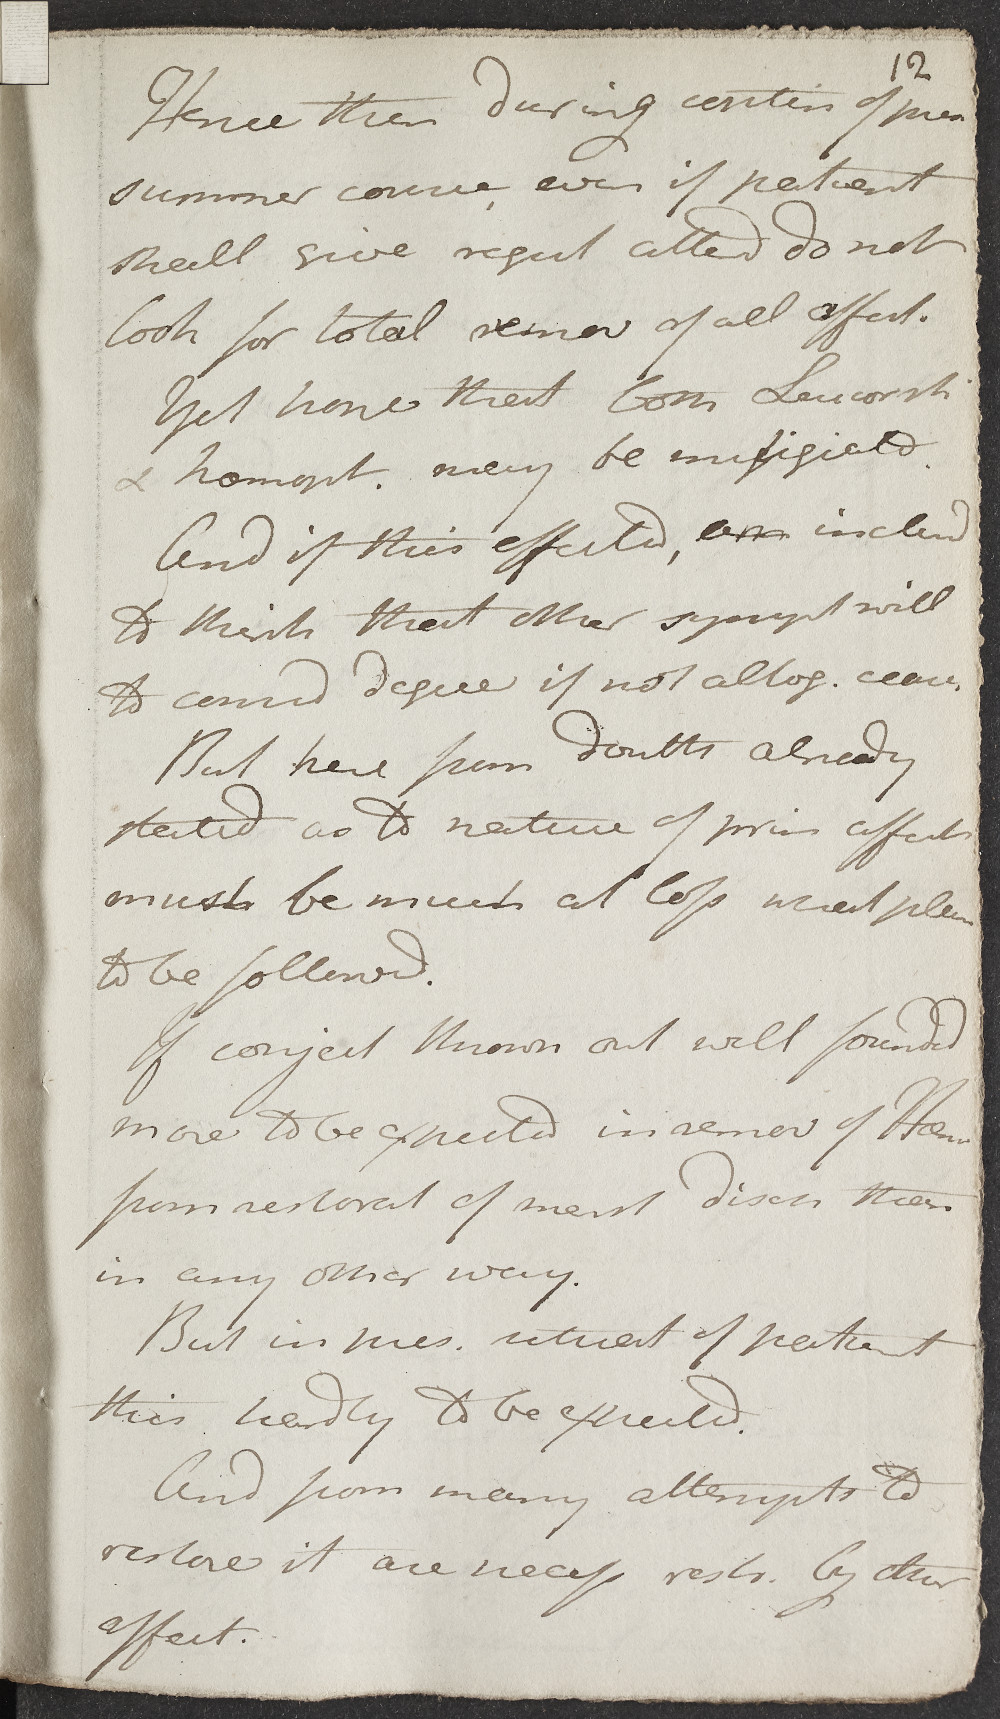 12
Hence then during contin of pres
summer course, even if patient
shall give regul attend do not
look for total remov of all affect.
Yet hope that both Leucorrh
& hœmopt. may be mitigated.
And if this effected, am inclend
to think that other sympt will
to consid degree if not altog. cease.
But here from doubts already
stated as to nature of prim affect
must be much at loss what plan
to be followed.
If conject thrown out well founded
more to be expected in remov of Hæm
from restorat of menst disch than
in any other way.
But in pres. situat of patient
this hardly to be expected.
And from many attempts to
restore it are necess restr. by other
affect.